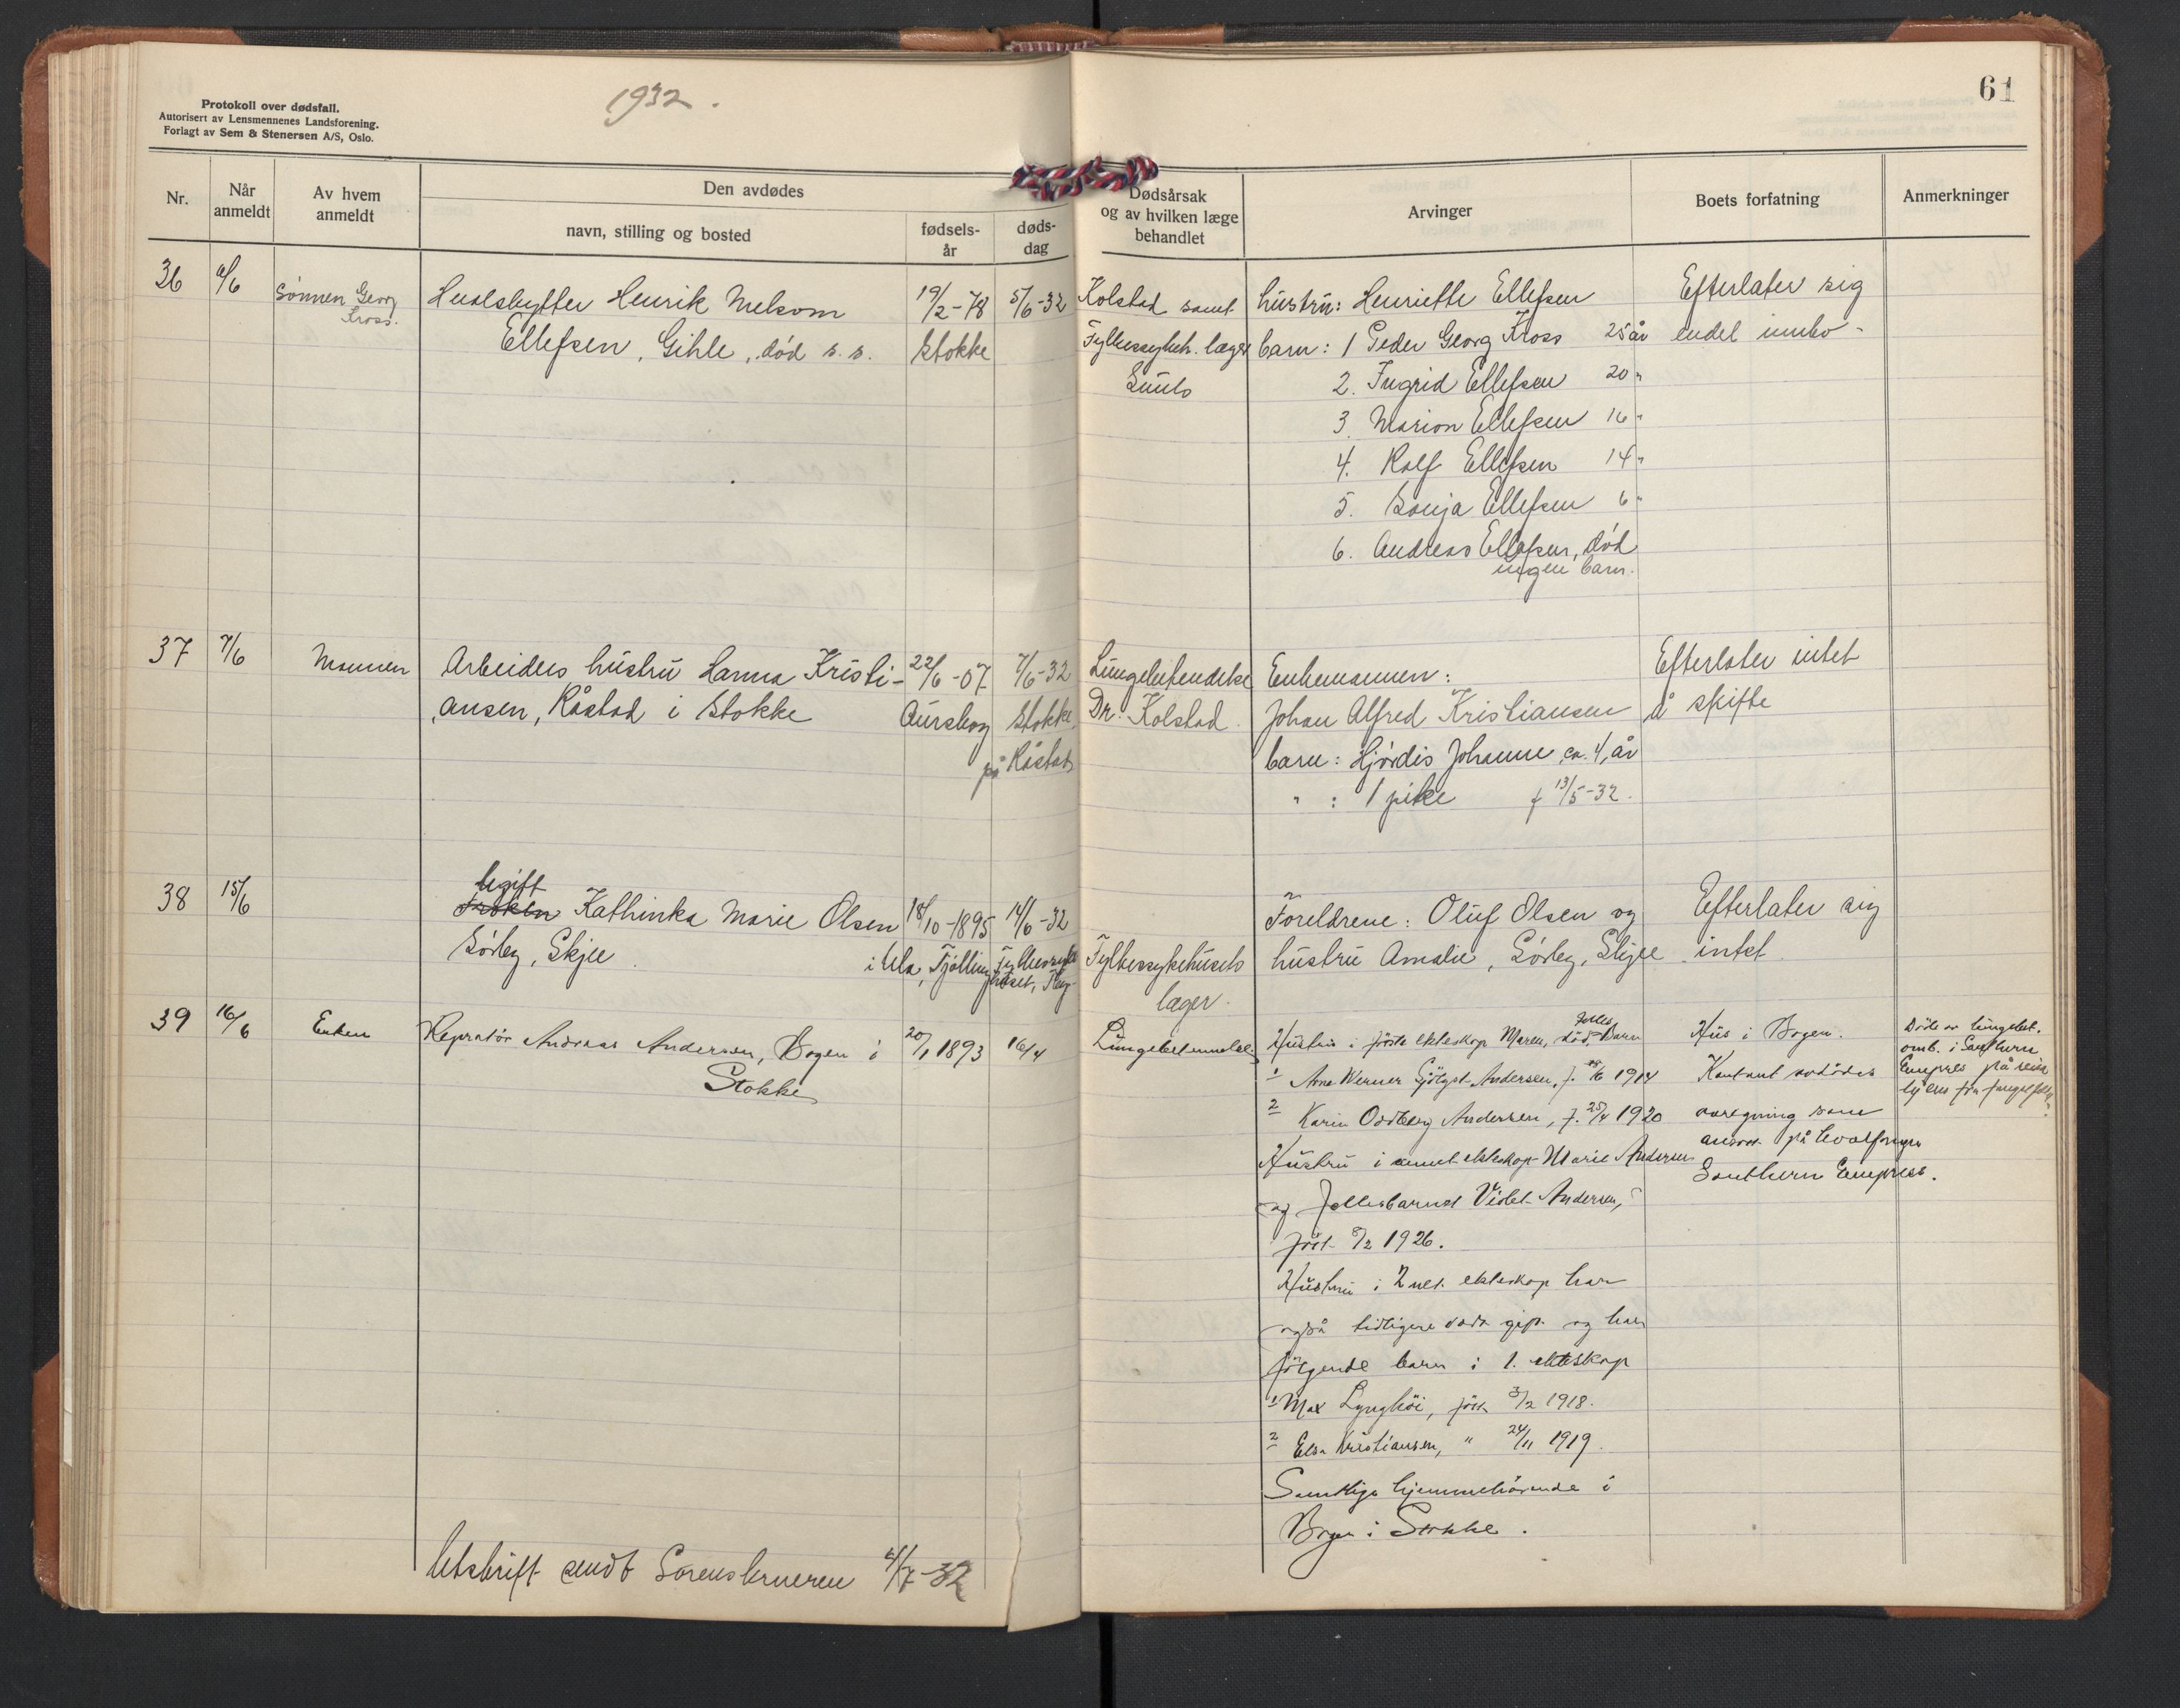 1932.
61
Protokoll over dødsfall.
Autorisert av Lensmennenes Landsforening.
Forlagt av Sem & Stenersen A/S, Oslo.
Nr.
Når anmeldt
Av hvem anmeldt
Den avdødes
navn, stilling og bosted
fødsels-år
døds-dag
Dødsårsak og av hvilken læge behandlet
Arvinger
Boets forfatning
Anmerkninger
36
6/6
Sønnen Georg
Kross.
Hvalskytter Henrik Melsom
Ellefsen, Gihle, død s. s.
19/2-78
Stokke
5/6-32
Kolstad samt
Fylkessykeh. læger
hustru: Henriette Ellefsen
barn: 1 Peder Georg Kross 25 år
2. Ingrid Ellefsen 20 "
3. Marion Ellefsen 16 "
4. Rolf Ellefsen 14 "
5. Sonja Ellefsen 6 "
6. Andreas Ellefsen, død
ingen barn.
Efterlater sig
endel innbo -
37
7/6
Mannen
Arbeiders hustru Hanna Kristi-
ansen, Råstad i Stokke
22/6-07
Aurskog
7/6-32
Stokke
på Råstad
Lungebetendelse
Dr. Kolstad.
Enkemannen:
Johan Alfred Kristiansen
barn: Hjørdis Johanne ca. 4 år
" : 1 pike f 13/5-32.
Efterlater intet
å skifte
38
15/6
ugift
Frøken Kathinka Marie Olsen
Sørby, Skjee
18/10-1895
i Ula, Tjølling
14/6-32
Fylkessyke
huset, Tbg.
Fylkessykehusets
læger.
Foreldrene: Oluf Olsen og
hustru Amalie, Sørby, Skjee
Efterlater sig
intet
39
16/6
Enken
Repratør Andreas Andersen, Bogen i
Stokke
20/1 1893
16/4
Lungebetennelse
Hustru i første ekteskap Maren, død. Felles Barn
1 Arne Werner Andersen, f. 1914
2 Karin Oddbjørg Andersen, f. 25/4 1920
Hustru i annet ekteskap Marie Andersen
og fellesbarnet Violet Andersen,
født 8/2 1926.
Hustru i 2net ekteskap har
også tidligere vært gift og har
følgende barn i 1. ekteskap
1 Max Lynghöi, født 3/2 1918.
2 Else Kristiansen, " 24/11 1919.
Samtlige hjemmehörende i
Bogen i Stokke.
Hus i Bogen.
Kontant avdödes
avregning som
ansatt på hvalfanger
Southern Empress.
Döde av lungebet.
omb. i Southern
Empress på reise
hjem fra fangstfelt.
Utskrift sendt Sorenskriveren 4/7-32